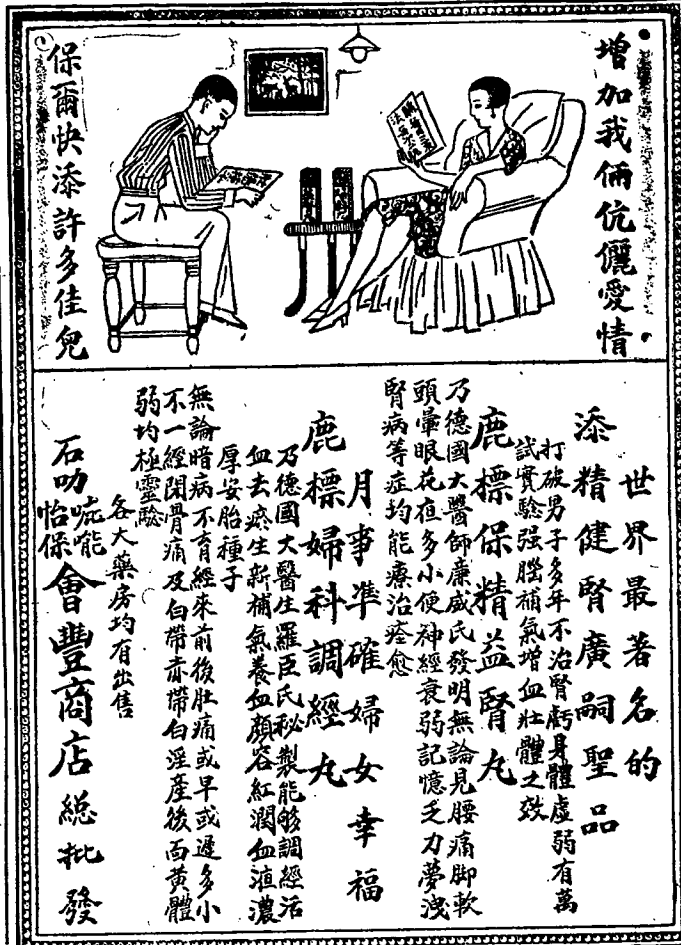 增加我倆伉儷愛情
保爾快添許多佳兒
世界最著名的
添精健腎廣嗣聖品
打破男子多年不治腎虧身體虛弱有萬
試實驗强腦補氣增血壯體之效
鹿標保精益腎丸
乃德國大醫師廉威氏發明無論見腰痛脚軟
頭暈眼花夜多小便神經衰弱記憶乏力夢洩
腎病等症均能療治痊愈
月事準確婦女幸福
鹿標婦科調經丸
乃德國大醫生羅臣氏秘製能够調經活
血去瘀生新補氣養血顏容紅潤血滙濃
厚安胎種子
無論暗病不育經來前後肚痛或早或遲多小
不一經閉骨痛及白帶赤帶白淫產後面黄體
弱均極靈驗
各大藥房均有出售
石叻
怡保
會豐商店總批發